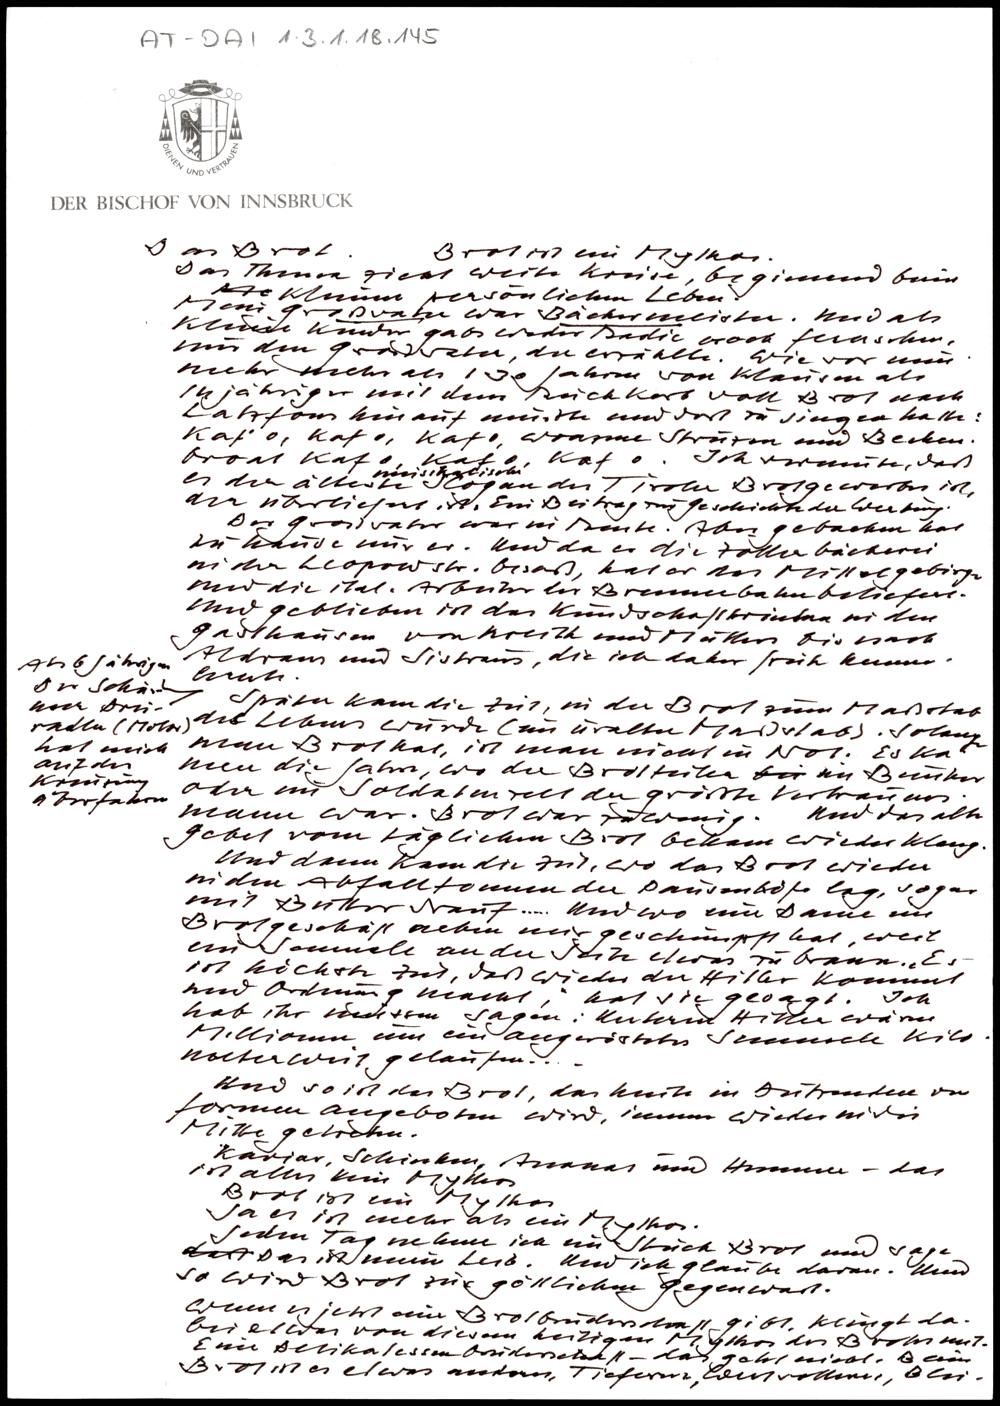 AT-DAI 1.3.1.18.145
DIENEN UND VERTRAUEN
DER BISCHOF VON INNSBRUCK
Das Brot. Brot ist ein Mythos.
Das Thema zieht weite Kreise, beginnend beim
kleinen persönlichen Leben.
Mein Großvater war Bäckermeister. Und als
kleine Kinder gabs weder Radio noch Fernsehen,
nur den Großvater, der erzählte. Wie vor nun
mehr mehr als 130 Jahren von Klausen als
14jähriger mit dem Buckelkorb voll Brot nach
Latzfons hinauf mußte und dort zu singen hatte:
Kaf o, Kaf o, Kaf o, woarme Strüzen und Becken-
broat Kaf o, Kaf o, Kaf o. Ich vermute, daß
es der älteste musikalische Slogan des Tiroler Brotgewerbes ist,
der überliefert ist. Ein Beitrag zur Geschichte der Werbung.
Der Großvater war in Rente. Aber gebacken hat
zu Hause nur er. Und da er die Zoller bäckerei
in der Leopoldstr. besaß, hat er das Mittelgebirge
und die ital. Arbeiter der Brennerbahn beliefert.
Und geblieben ist das Kundschafttrinken in den
Gasthäusern von Kreith und Mutters bis nach
Aldrans und Sistrans, die ich daher früh kennen-
lernte.
Als 6 jährigen
Der Schön-
herr Drei-
radler (Motor)
hat mich
auf der
Kreuzung
überfahren
Später kam die Zeit, in der Brot zum Maßstab
des Lebens wurde (ein uralter Maßstab). Solang
man Brot hat, ist man nicht in Not. Es ka
men die Jahre, wo der Brotteiler im Bunker
oder im Soldatenzelt der größte Vertrauens-
mann war. Brot war zu wenig. Und das alte
Gebet vom täglichen Brot bekam wieder Klang.
Und dann kam die Zeit, wo das Brot wieder
in den Abfalltonnen der Pausenhöfe lag, sogar
mit Butter drauf..... Und wo eine Dame im
Brotgeschäft neben mir geschimpft hat, weil
ein Semmele an der Seite etwas zu braun. "Es
ist höchste Zeit, daß wieder der Hitler kommt
und Ordnung macht," hat sie gesagt. Ich
hab ihr müssen sagen: Unterm Hitler wären
Millionen um ein angeröstetes Semmele Kilo-
meter weit gelaufen....
Und so ist das Brot, das heute in Dutzenden von
Formen angeboten wird, immer wieder in die
Mitte getreten.
Kaviar, Schinken, Ananas und Hummer – das
ist alles kein Mythos
Brot ist ein Mythos
Ja es ist mehr als ein Mythos.
Jeden Tag nehme ich ein Stück Brot und sage
Das ist mein Leib. Und ich glaube daran. Und
so wird Brot zur göttlichen Gegenwart.
Wenn es jetzt eine Brotbruderschaft gibt, klingt da-
bei etwas von diesem heiligen Mythos des Brotes mit.
Eine Delikatessenbruderschaft – das geht nicht. Beim
Brot ist es etwas anderes, Tieferes, Wertvolleres, Blei-